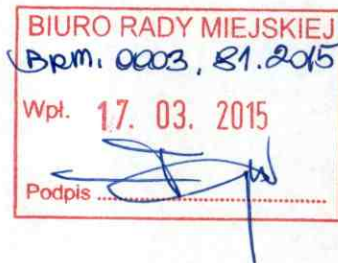 BIURO RADY MIEJSKIEJ
BRM. 0003. 81.2015
Wpł. 17. 03. 2015
Podpis